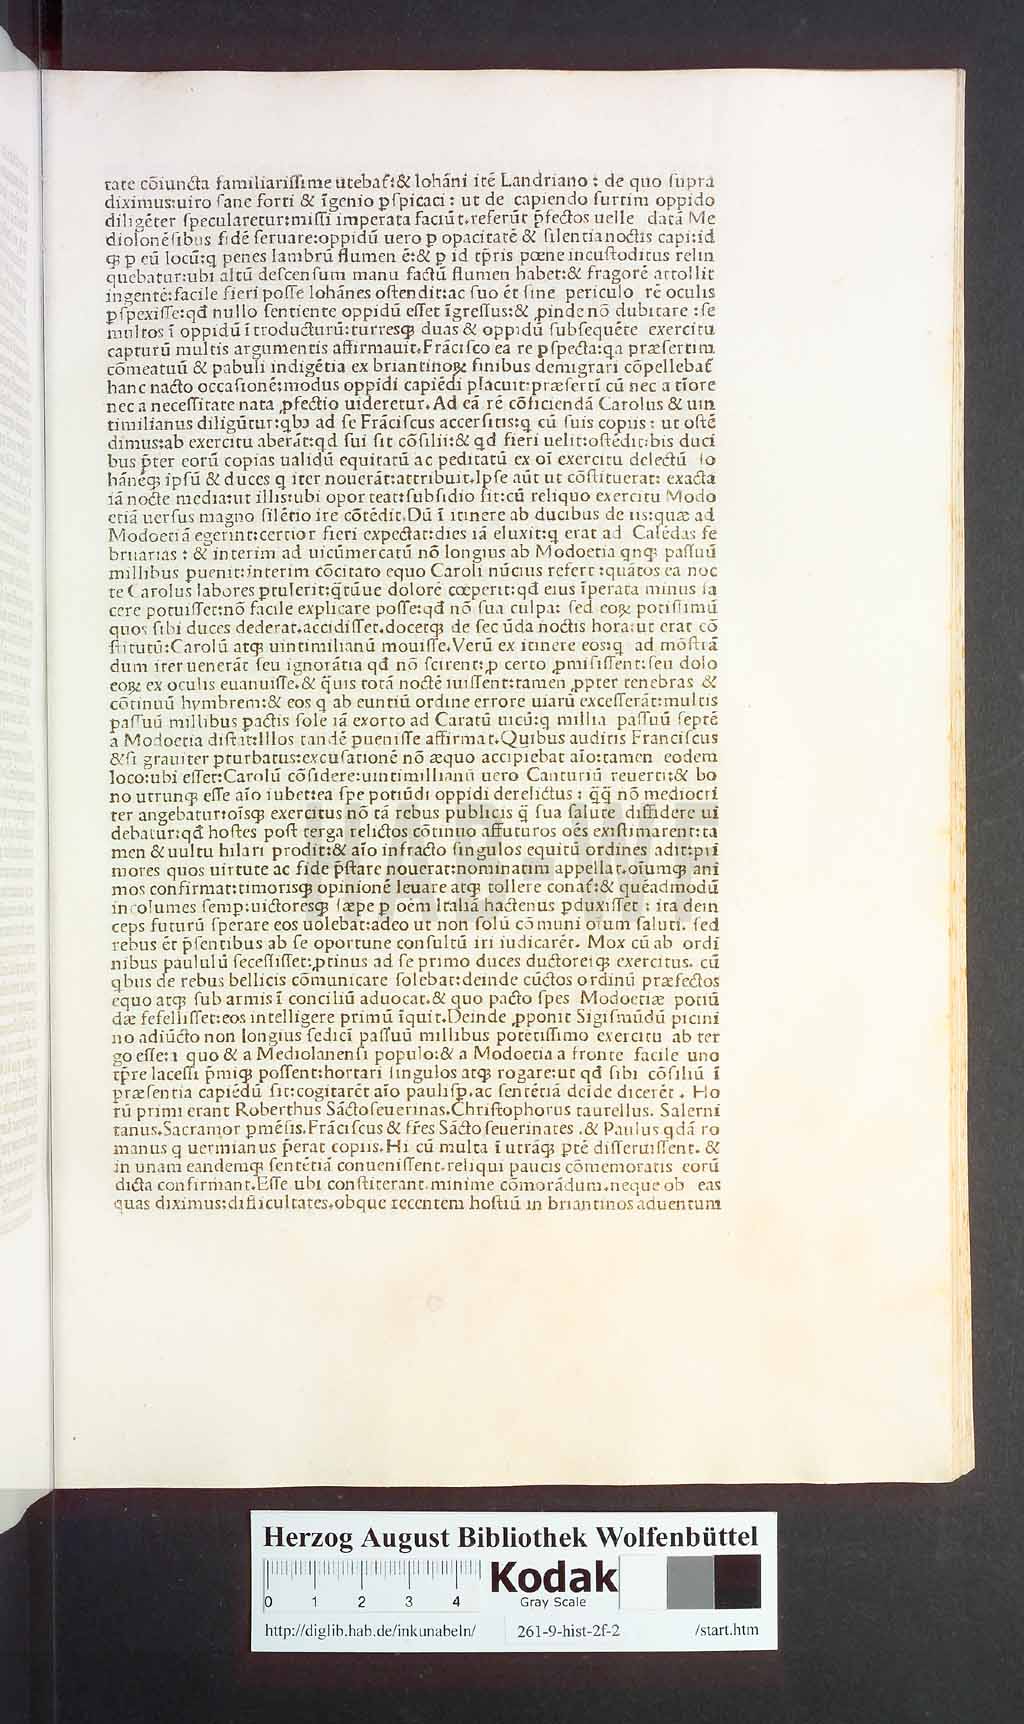 tate cõiuncta familiarissime utebat̃:&Iohãni itẽ Landriano: de quo supra
diximus:uiro sane forti & ĩgenio pspicaci: ut de capiendo furtim oppido
diligẽter specularetur:missi imperata faciũt.referũt p̃fectos uelle datã Me
diolonẽsibus fidẽ seruare:oppidũ uero p opacitatẽ & silentia noctis capi:id
qꝫ p eũ locũ:q penes lambrũ flumen ẽ:& p id tp̃ris pœne incustoditus relin
quebatur:ubi altũ descensum manu factũ flumen habet:& fragorẽ attollit
ingentẽ:facile fieri posse Iohãnes ostendit:ac suo ẽt sine periculo rẽ oculis
pspexisse:qđ nullo sentiente oppidũ esset ĩgressus:& ꝓinde nõ dubitare :se
multos ĩ oppidũ ĩtroducturũ:turresqꝫ duas & oppidũ subsequẽte exercitu
capturũ multis argumentis affirmauit.Frãcisco ea re pspecta:qa præsertim
cõmeatuũ & pabuli indigẽtia ex briantinoꝝ finibus demigrari cõpellebat̃
hanc nacto occasionẽ:modus oppidi capiẽdi placuit:præsertĩ cũ nec a tĩore
nec a necessitate nata ꝓfectio uideretur.Ad eã rẽ cõficiendã Carolus & uin
timilianus diligũtur:qbꝫ ad se Frãciscus accersitis:q cũ suis copiis: ut ostẽ
dimus:ab exercitu aberãt:qd sui sit cõsilii:& qđ fieri uelit:ostẽdit:bis duci
bus p̃ter eorũ copias ualidũ equitatũ ac peditatũ ex oĩ exercitu delectũ Io
hãnẽqꝫ ipsũ & duces q iter nouerãt:attribuit.Ipse aũt ut cõstituerat: exacta
iã nocte media:ut illis:ubi opor teat:subsidio sit:cũ reliquo exercitu Modo
etiã uersus magno silẽtio ire cõtẽdit.Dũ ĩ itinere ab ducibus de iis:quæ ad
Modoetiã egerint:certior fieri expectat:dies iã eluxit:q erat ad Calẽdas fe
bruarias : & interim ad uicũmercatũ nõ longius ab Modoetia qnqꝫ passuũ
millibus puenit:interim cõcitato equo Caroli nũcius refert :quãtos ea noc
te Carolus labores ptulerit:q̃tũue dolorẽ cœperit:qđ eius ĩperata minus fa
cere potuisset:nõ facile explicare posse:qđ nõ sua culpa: sed eoꝝ potissimũ
quos sibi duces dederat.accidisset.docetqꝫ de secũda noctis hora:ut erat cõ
stitutũ:Carolũ atqꝫ uintimilianũ mouisse.Verũ ex itinere eos:q ad mõstrã
dum iter uenerãt seu ignorãtia qđ nõ scirent:ꝓ certo ꝓmisissent:seu dolo
eoꝝ ex oculis euanuisse.& q̃uis totã noctẽ iuissent:tamen ꝓpter tenebras &
cõtinuũ hymbrem:& eos q ab euntiũ ordine errore uiarũ excesserãt:multis
passuũ millibus pactis sole iã exorto ad Caratũ uicũ:q millia passuũ septẽ
a Modoetia distat:Illos tandẽ puenisse affirmat.Quibus auditis Franciscus
&si grauiter pturbatus:excusationẽ nõ æquo accipiebat aĩo:tamen eodem
loco:ubi esset:Carolũ cõsidere:uintimillianũ uero Canturiũ reuerti:& bo
no utrunqꝫ esse aĩo iubet:ea spe potiũdi oppidi derelictus : q̃q̃ nõ mediocri
ter angebatur:oĩsqꝫ exercitus nõ tã rebus publicis q̃ sua salute diffidere ui
debatur:qđ hostes post terga relictos cõtinuo affuturos oẽs existimarent:ta
men & uultu hilari prodit:& aĩo infracto singulos equitũ ordines adit:pri
mores quos uirtute ac fide p̃stare nouerat:nominatim appellat.oĩumqꝫ ani
mos confirmat:timorisqꝫ opinionẽ leuare atqꝫ tollere conat̃:& quẽadmodũ
incolumes semp:uictoresqꝫ sæpe p oẽm Italiã hactenus pduxisset : ita dein
ceps futurũ sperare eos uolebat:adeo ut non solũ cõmuni oĩum saluti. sed
rebus ẽt p̃sentibus ab se oportune consultũ iri iudicarẽt. Mox cũ ab ordi
nibus paululũ secessisset:ꝓtinus ad se primo duces ductoreiqꝫ exercitus. cũ
qbus de rebus bellicis cõmunicare solebat:deinde cũctos ordinũ præfectos
equo atqꝫ sub armis ĩ conciliũ aduocat.& quo pacto spes Modoetiæ potiũ
dæ fefellisset:eos intelligere primũ ĩquit.Deinde ꝓponit Sigismũdũ picini
no adiũcto non longius sedicĩ passuũ millibus potẽtissimo exercitu ab ter
go esse:1 quo & a Mediolanensi populo:& a Modoetia a fronte facile uno
tp̃re lacessi p̃miqꝫ possent:hortari singulos atqꝫ rogare:ut qd sibi cõsiliũ ĩ
præsentia capiẽdũ sit:cogitarẽt aĩo paulisp̃.ac sentẽtiã deĩde dicerẽt . Ho
rũ primi erant Roberthus Sãctoseuerinas.Christophorus taurellus. Salerni
tanus.Sacramor pmẽsis.Frãciscus & fr̃es Sãctoseuerinates .& Paulus qdã ro
manus q uermianus p̃erat copiis.Hi cũ multa ĩ utrãqꝫ ptẽ disseruissent. &
in unam eandemqꝫ sentẽtiã conuenissent.reliqui paucis cõmemoratis eorũ
dicta confirmant.Esse ubi constiterant.minime cõmorãdum.neque ob eas
quas diximus:difficultates.obque recentem hostiũ in briantinos aduentum
HAB-WF
Herzog August Bibliothek Wolfenbüttel
0 1 2 3 4
Kodak
Gray Scale
http://diglib.hab.de/inkunabeln/ 261-9-hist-2f-2 /start.htm